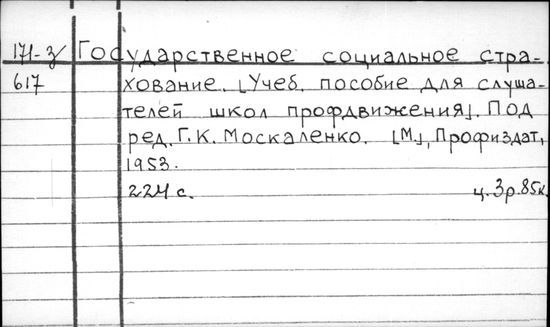 171-3/ Государственное социальное стра-
617 хование. [Учеб. пособие для слуша-
телей школ профдвижения]. Под
ред. Г.К. Москаленко. [М], Профиздат,
1953.
224 с. ц. 3р. 85к.